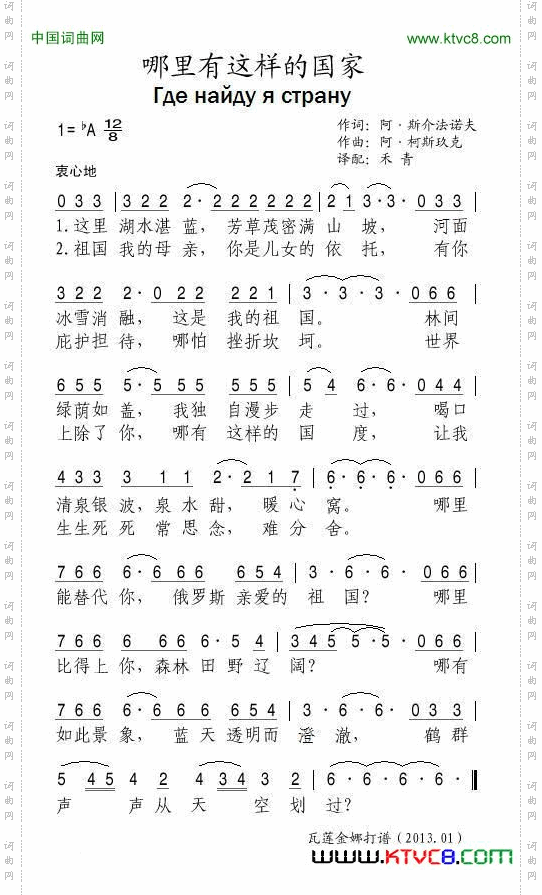 中国词曲网 www.ktvc8.com
哪里有这样的国家
Где найду я страну
1= ♭A 12/8
作词：阿·斯介法诺夫
作曲：阿·柯斯玖克
译配：禾 青
衷心地
0 3 3 | 3 2 2 2· 2 2 2 2 2 2 2 | 2 1 3· 3· 0 3 3 |
1.这里 湖水湛 蓝， 芳草茂密满 山 坡， 河面
2.祖国 我的母 亲， 你是儿女的 依 托， 有你
3 2 2 2· 0 2 2 2 2 1 | 3· 3· 3· 0 6 6 |
冰雪消 融， 这是 我的祖 国。 林间
庇护担 待， 哪怕 挫折坎 坷。 世界
6 5 5 5· 5 5 5 5 5 5 | 5 4 6· 6· 0 4 4 |
绿荫如 盖， 我独 自漫步 走 过， 喝口
上除了 你， 哪有 这样的 国 度， 让我
4 3 3 3 1 1 2· 2 1 7 | 6· 6· 6· 0 6 6 |
清泉银 波，泉 水甜， 暖心 窝。 哪里
生生死 死 常 思念， 难分 舍。
7 6 6 6· 6 6 6 6 5 4 | 3· 6· 6· 0 6 6 |
能替代 你， 俄罗斯 亲爱的 祖 国？ 哪里
7 6 6 6 6 6 6· 5 4 | 3 4 5 5 5· 5· 0 6 6 |
比得上 你，森林 田 野辽 阔？ 哪有
7 6 6 6· 6 6 6 6 5 4 | 3· 6· 6· 0 3 3 |
如此景 象， 蓝 天 透明而 澄 澈， 鹤群
5 4 5 4 2 4 3 4 3 2 | 6· 6· 6· 6·
声 声从 天 空 划 过？
瓦莲金娜打谱（2013.01）
www.KTVC8.com
词曲网
词曲网
词曲网
词曲网
词曲网
词曲网
词曲网
词曲网
词曲网
词曲网